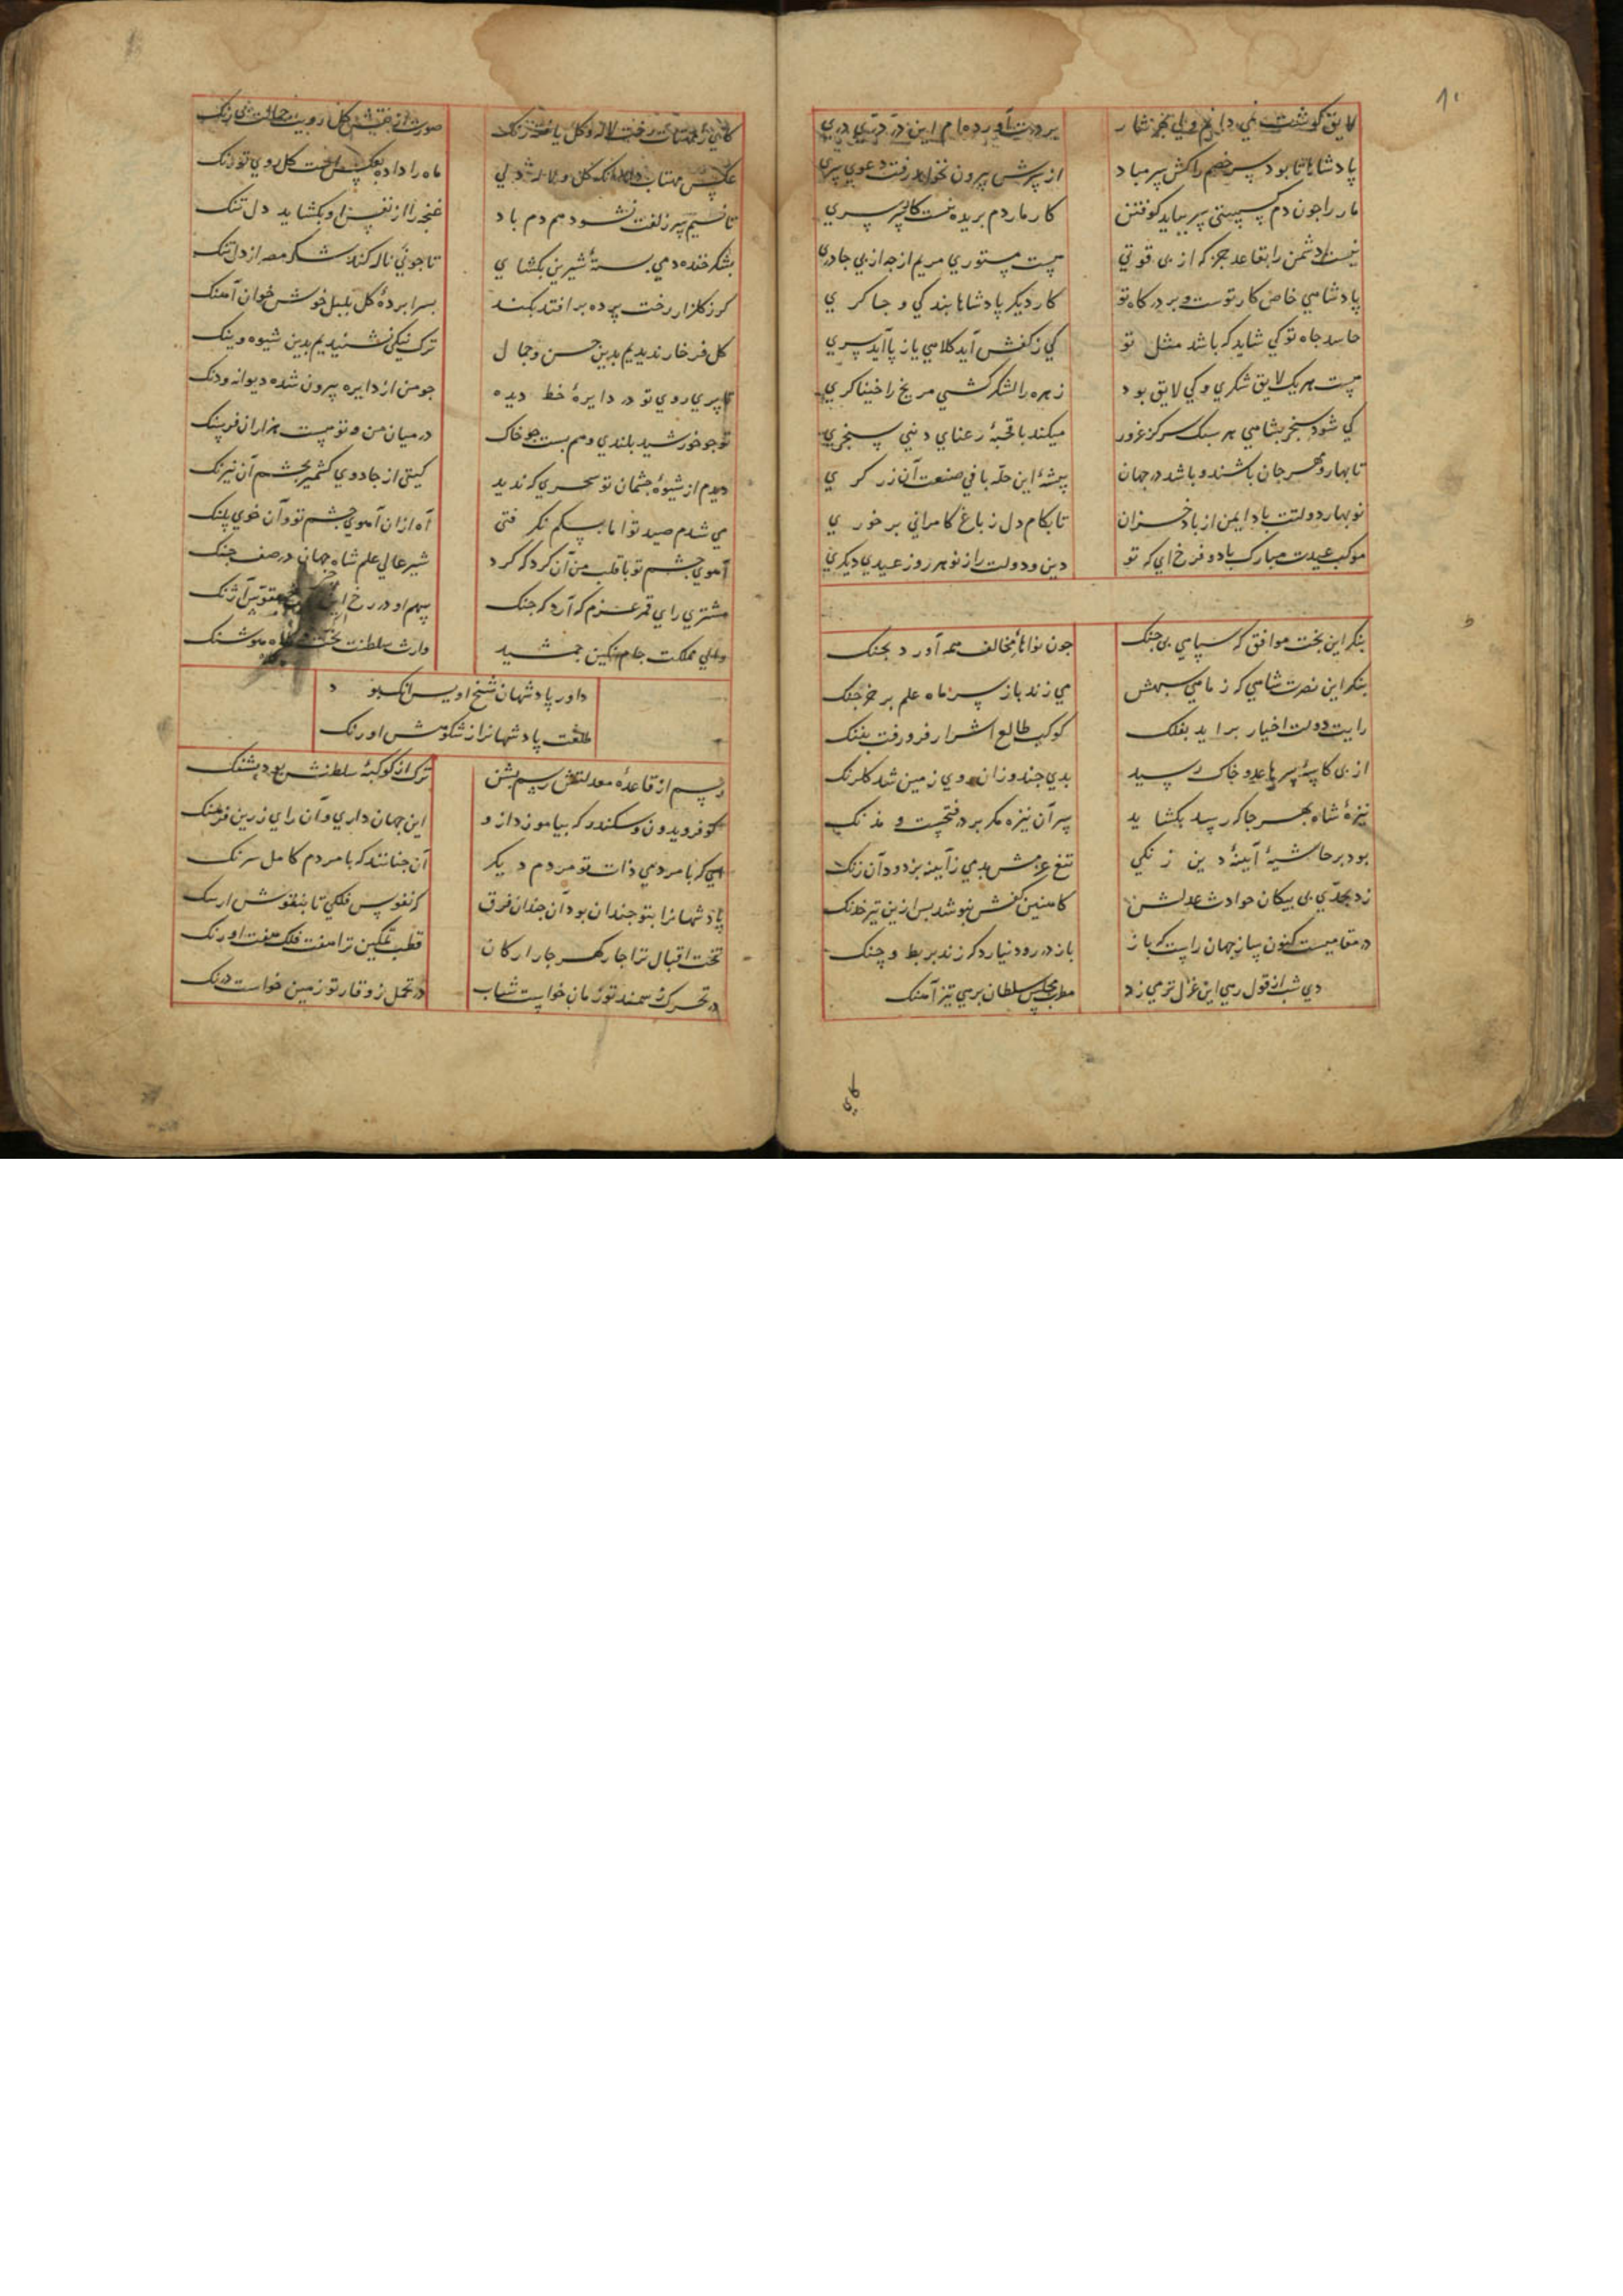 ۱۰
لایق گوشت نمی دانم و این نثار
بر درت آورده ام این در دری
پادشاها تا بود سر خصم راکش سر مباد
از سرش بیرون نخواهد رفت دعوی سری
مار را جون دم کسستی سر بباید کوفتن
کار مار دم بریده نیست کالا سرسری
نیست دشمن را بقاعد جز که از بی قوتی
جیست مستوری مریم از جه از بی جادری
پادشاهی خاص کار توست و بر درکاه تو
کار دیکر پادشاها بندکی و جاکری
حاسد جاه تو کی شاید که باشد مثل تو
کی ز کفش آید کلاهی یا ز پا آید سری
جیست هر یک لایق شکری و کی لایق بود
زهره را لشکر کشی مریخ را خنیاکری
کی شود سنجر بشاهی هر سبک سر کز غرور
میکند با قحبه رعنای دنیی سنجری
تا بهار و مهرجان باشند و باشد در جهان
پیشه این حله بافی صنعت آن زرکری
نوبهار دولتت باد ایمن از باد خزان
تا بکام دل ز باغ کامرانی بر خوری
موکب عیدت مبارک باد و فرخ ای که تو
دین و دولت را ز نو هر روز عیدی دیکری
بنکر این بخت موافق که سپاهی بی جنک
جون نواهای مخالف همه آورد بجنک
بنکر این نصرت شاهی که ز ماهی سپهش
می زند باز سر ماه علم بر خرجنک
رایت دولت اخیار برآید بفلک
کوکب طالع اشرار فرو رفت بننک
از بی کاسه سرها عدو خاک رسید
بدی جند و زان روی زمین شد کلرنک
نیزه شاه بهر جا که رسید بکشاید
سر آن نیزه مکر بر در فتحست و مدنک
بود بر حاشیه آینه دین زنکی
تیغ عزمش بدمی ز آینه بزدود آن زنک
زد بحدی بی پیکان حوادث عدلش
کاهنین کفش نپوشد بس ازین تیر خدنک
در مقامیست کنون ساز جهان راست که باز
باز در رود نیارد که زند بربط و چنک
دی شب از قول رهی این غزل تر می زد
مطرب مجلس سلطان برهی تیز آهنک
کای ز مهتاب رخت لاله و کل یافته رنک
صورت از نقش کل رویت جمالت
عکس مهتاب دهد رنک کل و لاله ولی
ماه را داده بعکس رخت کل روی تو رنک
تا نسیم سر زلفت نشود هم دم باد
غنچه را از نفس او بکشاید دل تنک
بشکر خنده دمی بسته شیرین بکشای
تا جو نی ناله کند شکر مصر از دل تنک
کر ز کلزار رخت پرده بر افتد بکند
بسرا پرده کل بلبل خوش خوان آهنک
کل فرخار ندیدیم بدین حسن و جمال
ترک نیکی نشنیدیم بدین شیوه وینک
تا پری روی تو در دایره خط دیده
جو من از دایره بیرون شده دیوانه و دنک
تو جو خورشید بلندی و همم بست جو خاک
در میان من و تو هست هزاران فرسنک
دیدم از شیوه جشمان تو سحری که ندید
کیتی از جادوی کشمیر بجشم آن نیرنک
می شدم صید تو اما بسکم نکرفتی
آه ازان آهوی جشم تو وان خوی پلنک
آهوی جشم تو با قلب من آن کرد که کرد
شیر عالی علم شاه جهان در صف جنک
مشتری رای قمر عزم که آرد که جنک
سهم او در رخ مقوس آژنک
والی مملکت جام نکین جمشید
وارث سلطنت تخت هوشنک
داور پادشهان شیخ اویس آنک بود
طلعت پادشهانرا ز شکوهش اورنک
رسم از قاعده معدلتش رسم بشن
ترک از کوکبه سلطنش بود بشنک
کو فریدون و سکندر که بیاموزد ازو
این جهان داری و آن رای زرین فرهنک
ای که با مردمی ذات تو مردم دیکر
آن جنانند که با مردم کامل سرنک
پادشهانرا بتو جندان بود آن جندان فرق
کز نفوس فلکی تا بنقوش ارتنک
تخت اقبال ترا جار کهر جار ارکان
قطب تمکین ترا هفت فلک هفت اورنک
در تحرک ز سمند تو زمان خواست شتاب
در تحمل ز وقار تو زمین خواست درنک